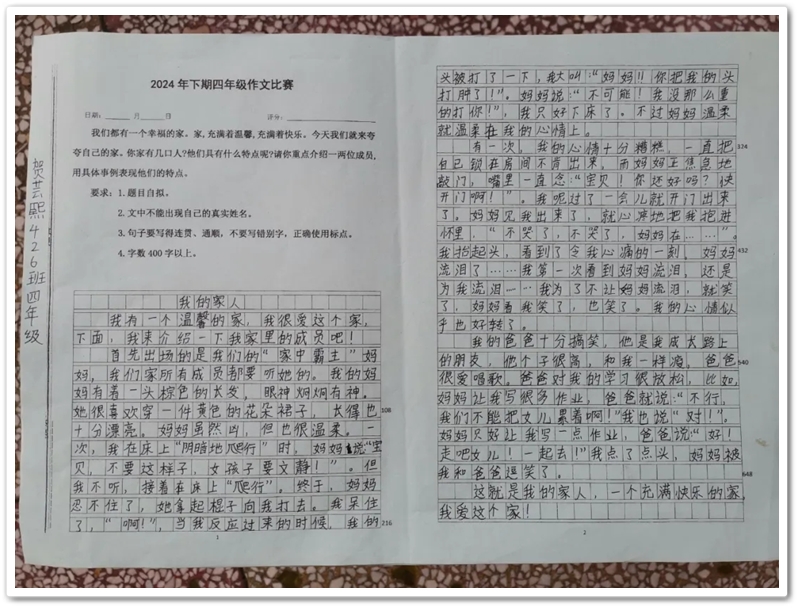 贺芸熙426班四年级
2024年下期四年级作文比赛
日期：______月______日 评分：______
我们都有一个幸福的家。家,充满着温馨,充满着快乐。今天我们就来夸
夸自己的家。你家有几口人?他们具有什么特点呢?请你重点介绍一两位成员,
用具体事例表现他们的特点。
要求：1.题目自拟。
2.文中不能出现自己的真实姓名。
3.句子要写得连贯、通顺，不要写错别字，正确使用标点。
4.字数400字以上。
我的家人
我有一个温馨的家，我很爱这个家，
下面，我来介绍一下我家里的成员吧！
首先出场的是我们的“家中霸主”妈
妈，我们家所有成员都要听她的。我的妈
妈有着一头棕色的长发，眼神炯炯有神。
她很喜欢穿一件黄色的花朵裙子，长得也
108
十分漂亮。妈妈虽然凶，但也很温柔。一
次，我在床上“阴暗地爬行”时，妈妈说“宝
贝，不要这样子，女孩子要文静！”。但
我不听，接着在床上“爬行”。终于，妈妈
忍不住了，她拿起棍子向我打去。我呆住
了，“啊！”，当我反应过来的时候，我的
216
1
头被打了一下，我大叫：“妈妈！！你把我的头
打肿了！”。妈妈说：“不可能！我没那么重
的打你！”，我只好下床了。不过妈妈温柔
就温柔在我的心情上。
有一次，我的心情十分糟糕，一直把
324
自己锁在房间不肯出来，而妈妈正焦急地
敲门，嘴里一直念：“宝贝！你还好吗？快
开门啊！”。我呢过了一会儿就开门出来
了，妈妈见我出来了，就心疼地把我抱进
怀里，“不哭了，不哭了，妈妈在……”。
我抬起头，看到了令我心痛的一刻，妈妈
432
流泪了……我第一次看到妈妈流泪，还是
为我流泪……我为了不让妈妈流泪，就笑
了，妈妈看我笑了，也笑了。我的心情似
乎也好转了。
我的爸爸十分搞笑，他是我成长路上
的朋友，他个子很高，和我一样瘦。爸爸
540
很爱唱歌。爸爸对我的学习很放松，比如，
妈妈让我写很多作业，爸爸就说：“不行，
我们不能把女儿累着啊！”我也说“对！”。
妈妈只好让我写一点作业，爸爸说“好！
走吧女儿！一起去！”我点了点头，妈妈被
我和爸爸逗笑了。
648
这就是我的家人，一个充满快乐的家，
我爱这个家！
2